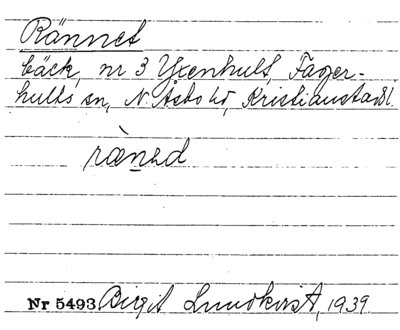 Rännet
bäck, nr 3 Yxenhult, Fager-
hults sn, N. Åsbo hd, Kristianstads l.
ræ̀nəd
Nr 5493 Birgit Lundkvist, 1939